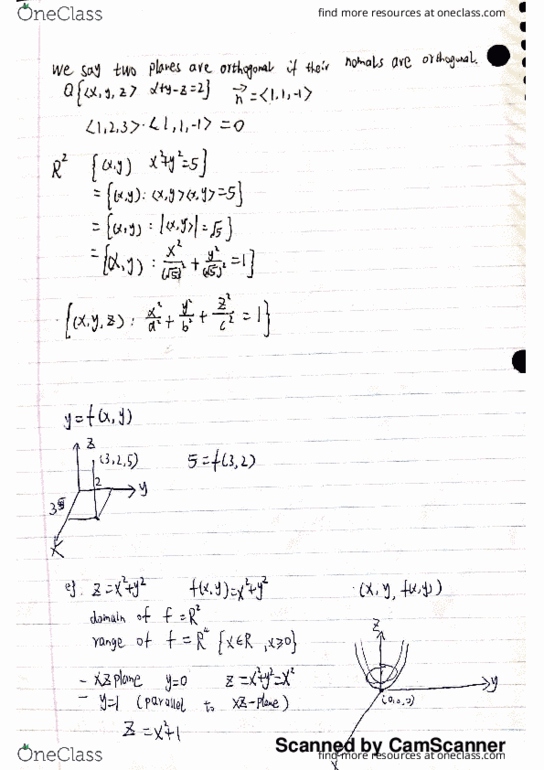 OneClass
find more resources at oneclass.com
we say two planes are orthogonal if their nomals are orthogonal.
Q{<x, y, z> x+y-z=2} n⃗ = <1, 1, -1>
<1, 2, 3> · <1, 1, -1> = 0
R² {(x,y) x²+y²=5}
= {(x,y): <x,y><x,y> = 5}
= {(x,y): |<x,y>| = √5}
= {(x,y): x²/(√5)² + y²/(√5)² = 1}
{(x,y,z): x²/a² + y²/b² + z²/c² = 1}
y = f(x, y)
z
(3,2,5)
5 = f(3,2)
2
y
3
x
eg. z = x²+y² f(x,y) = x²+y² (x, y, f(x,y))
domain of f = R²
range of f = R {x∈R, x≥0}
z
- xz plane y=0 z = x²+y² = x²
y
- y=1 (parallel to xz-plane)
(0,0,0)
z = x²+1
x
Scanned by CamScanner
OneClass
find more resources at oneclass.com